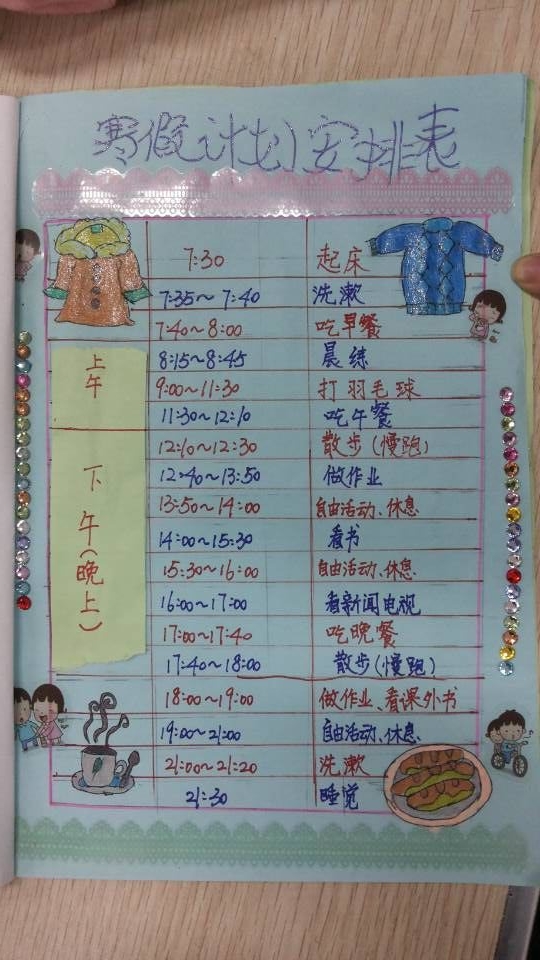 寒假计划安排表
7:30 起床
7:35～7:40 洗漱
7:40～8:00 吃早餐
上午
8:15～8:45 晨练
9:00～11:30 打羽毛球
11:30～12:10 吃午餐
下午(晚上)
12:10～12:30 散步(慢跑)
12:40～13:50 做作业
13:50～14:00 自由活动、休息
14:00～15:30 看书
15:30～16:00 自由活动、休息
16:00～17:00 看新闻电视
17:00～17:40 吃晚餐
17:40～18:00 散步(慢跑)
18:00～19:00 做作业、看课外书
19:00～21:00 自由活动、休息
21:00～21:20 洗漱
21:30 睡觉